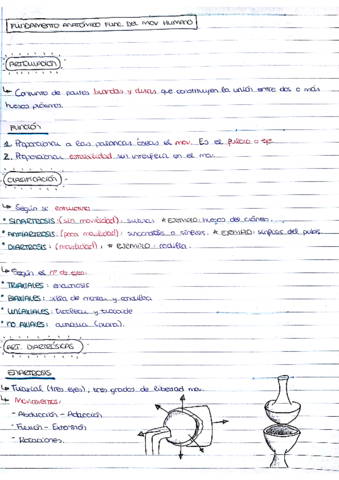 FUNDAMENTO ANATÓMICO FUNC. DEL MOV HUMANO
ARTICULACIÓN
↳ Conjunto de partes blandas y duras que constituyen la unión entre dos o más
huesos próximos.
FUNCIÓN
1. Proporcionar a las palancas óseas el mov. Es el punto o eje.
2. Proporcionar estabilidad sin interferir en el mov.
CLASIFICACIÓN
↳ Según su estructura:
• SINARTROSIS: (sin movilidad): suturas * EJEMPLO: huesos del cráneo.
• ANFIARTROSIS: (poca movilidad): sincondrosis o sínfisis. * EJEMPLO: sínfisis del pubis.
• DIARTROSIS: (movilidad), * EJEMPLO: rodilla.
↳ Según el nº de ejes:
• TRIAXIALES: enartrosis
• BIAXIALES: silla de montar y condílea
• UNIAXIALES: troclear y trocoide
• NO AXIALES: artrodia (plana).
ART. DIARTRÓSICAS
ENARTROSIS
↳ Triaxial (tres ejes), tres grados de libertad mov.
↳ Movimientos:
- Abducción - Aducción
- Flexión - Extensión
- Rotaciones.